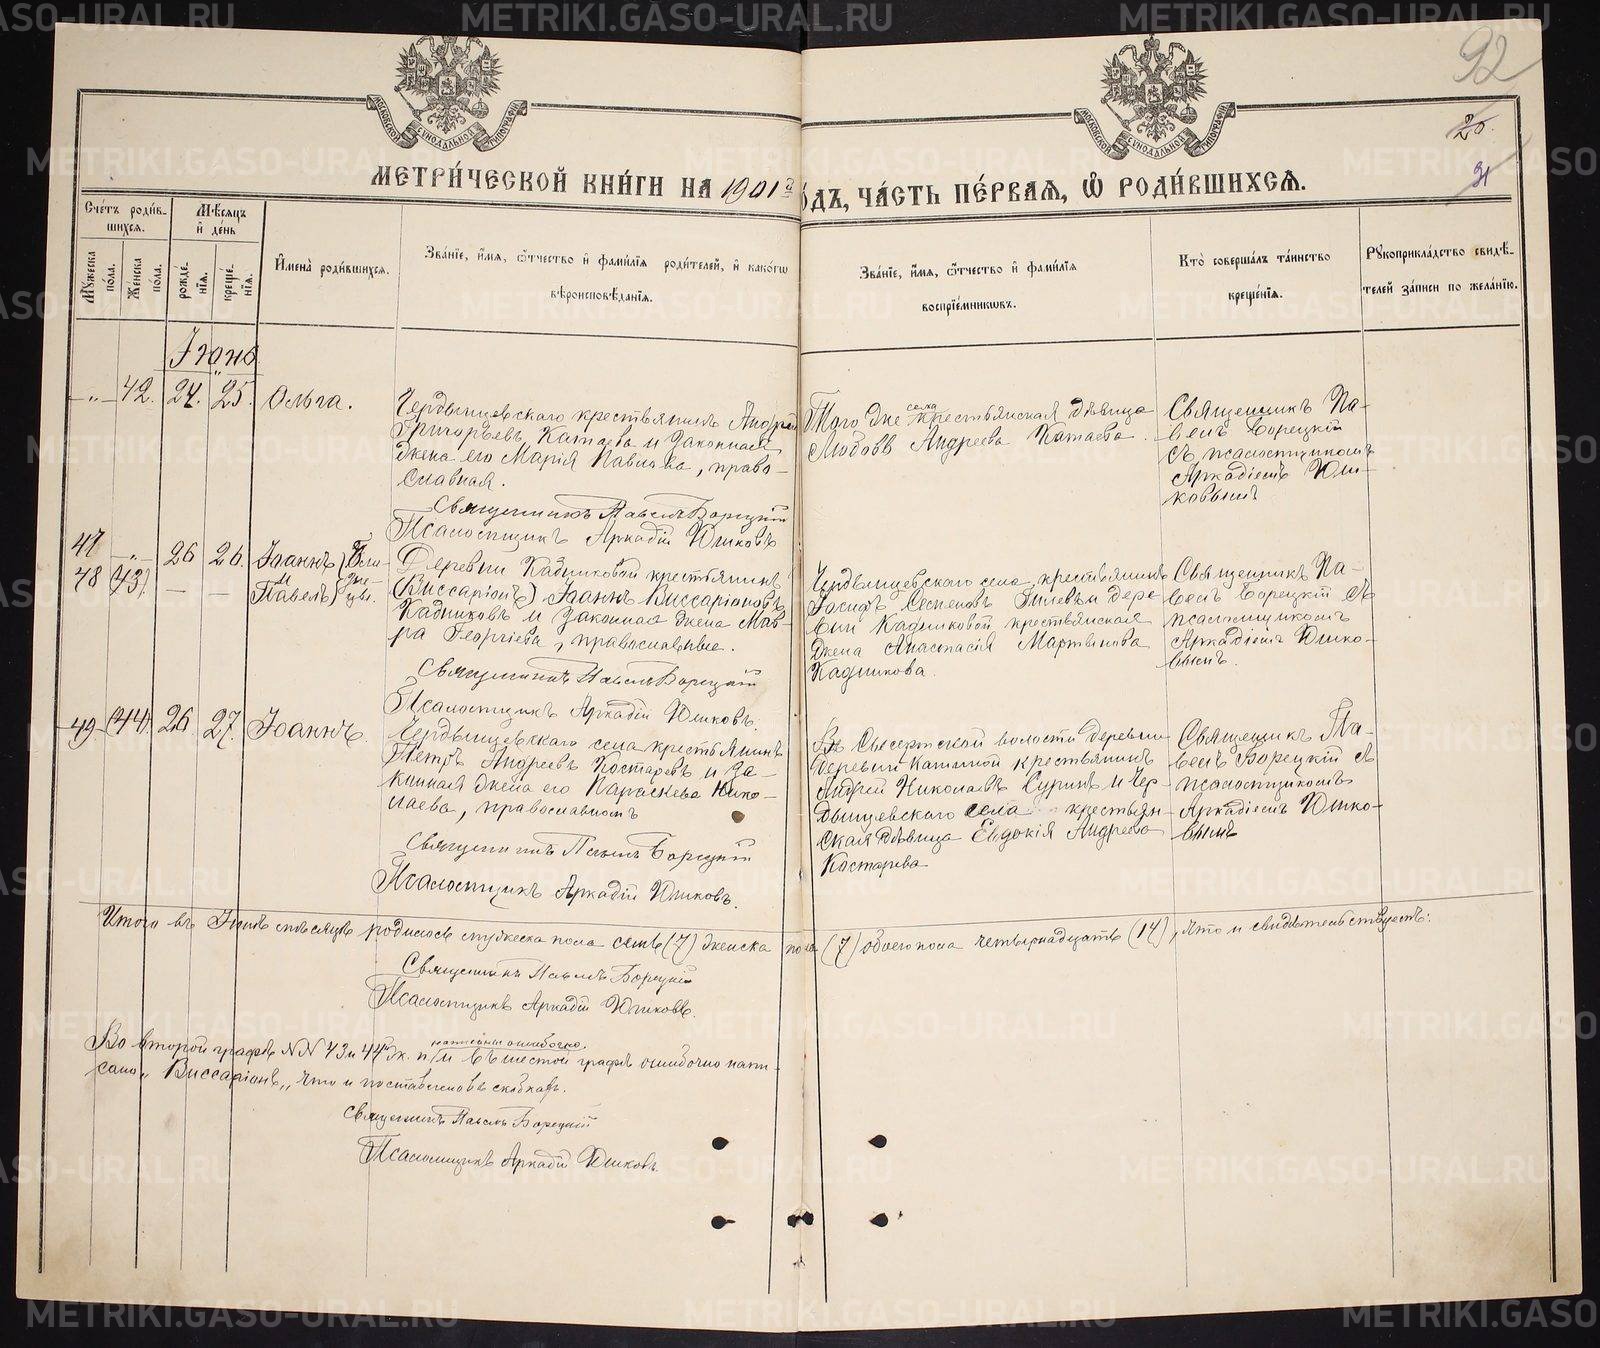 92
26.
31
МЕТРИ́ЧЕСКОЙ КНИ́ГИ НА 1901 й
О́ДЪ, ЧА́СТЬ ПЕ́РВАЯ, Ѽ РОДИ́ВШИХСЯ.
Сче́тъ роди́в-
шихся.
Мѣ́сяцъ
и҆ де́нь
Мꙋ́жеска
по́ла.
Же́нска
по́ла.
рожде́-
нїя.
креще́-
нїя.
И҆мена̀ роди́вшихся.
Зва́нїе, и҆́мя, ѻ҆́тчество и҆ фами́лїя роди́телей, и҆ како́гѡ
вѣроисповѣ́данїя.
Зва́нїе, и҆́мя, ѻ҆́тчество и҆ фами́лїя
воспрїе́мниковъ.
Кто̀ соверша́лъ та́инство
креще́нїя.
Рꙋкоприкла́дство свидѣ́-
телей за́писи по жела́нїю.
Іюнь
-„- 42. 24. 25. Ольга.
Чердынцевскаго крестьянинъ Андрей
Григорьевъ Катаевъ и законная
жена его Марія Павлова, право-
славная.
Священникъ Павелъ Борецкій
Псаломщикъ Аркадій Юшковъ
Того же села крестьянская дѣвица
Любовь Андреева Катаева.
Священникъ Па-
велъ Борецкій
съ псаломщикомъ
Аркадіемъ Юш-
ковымъ
47 -„- 26 26. Іоаннъ) Близ-
48 (43) — — и Павелъ) не-
цы.
Деревни Кадниковой крестьянинъ
(Виссаріонъ) Іоаннъ Виссаріоновъ
Кадниковъ и законная жена Мав-
ра Георгіева, православные.
Священникъ Павелъ Борецкій
Псаломщикъ Аркадій Юшковъ.
Чердынцевскаго села крестьянинъ
Іосифъ Семеновъ Гилевъ и дере-
вни Кадниковой крестьянская
жена Анастасія Мартынова
Кадникова.
Священникъ Па-
велъ Борецкій съ
псаломщикомъ
Аркадіемъ Юшко-
вымъ.
49. (44) 26 27. Іоаннъ.
Чердынцевскаго села крестьянинъ
Петръ Андреевъ Костаревъ и за-
конная жена его Параскева Нико-
лаева, православномъ
Священникъ Павелъ Борецкій
Псаломщикъ Аркадій Юшковъ.
Въ Сысертской волости деревни
деревни Кашиной крестьянинъ
Андрей Николаевъ Суринъ и Чер-
дынцевскаго села крестьян-
ская дѣвица Евдокія Андреева
Костарева
Священникъ Па-
велъ Борецкій съ
псаломщикомъ
Аркадіемъ Юшко-
вымъ
Итого въ Іюнѣ мѣсяцѣ родилось мужеска пола семь (7) женска пола (7) обоего пола четырнадцать (14), что и свидѣтельствуемъ:
Священникъ Павелъ Борецкій
Псаломщикъ Аркадій Юшковъ.
написаны ошибочно.
Во второй графѣ NN 43 и 44 ж. п. и въ шестой графѣ ошибочно напи-
сано „Виссаріонъ„ что и поставлено въ скобкахъ.
Священникъ Павелъ Борецкій
Псаломщикъ Аркадій Юшковъ.